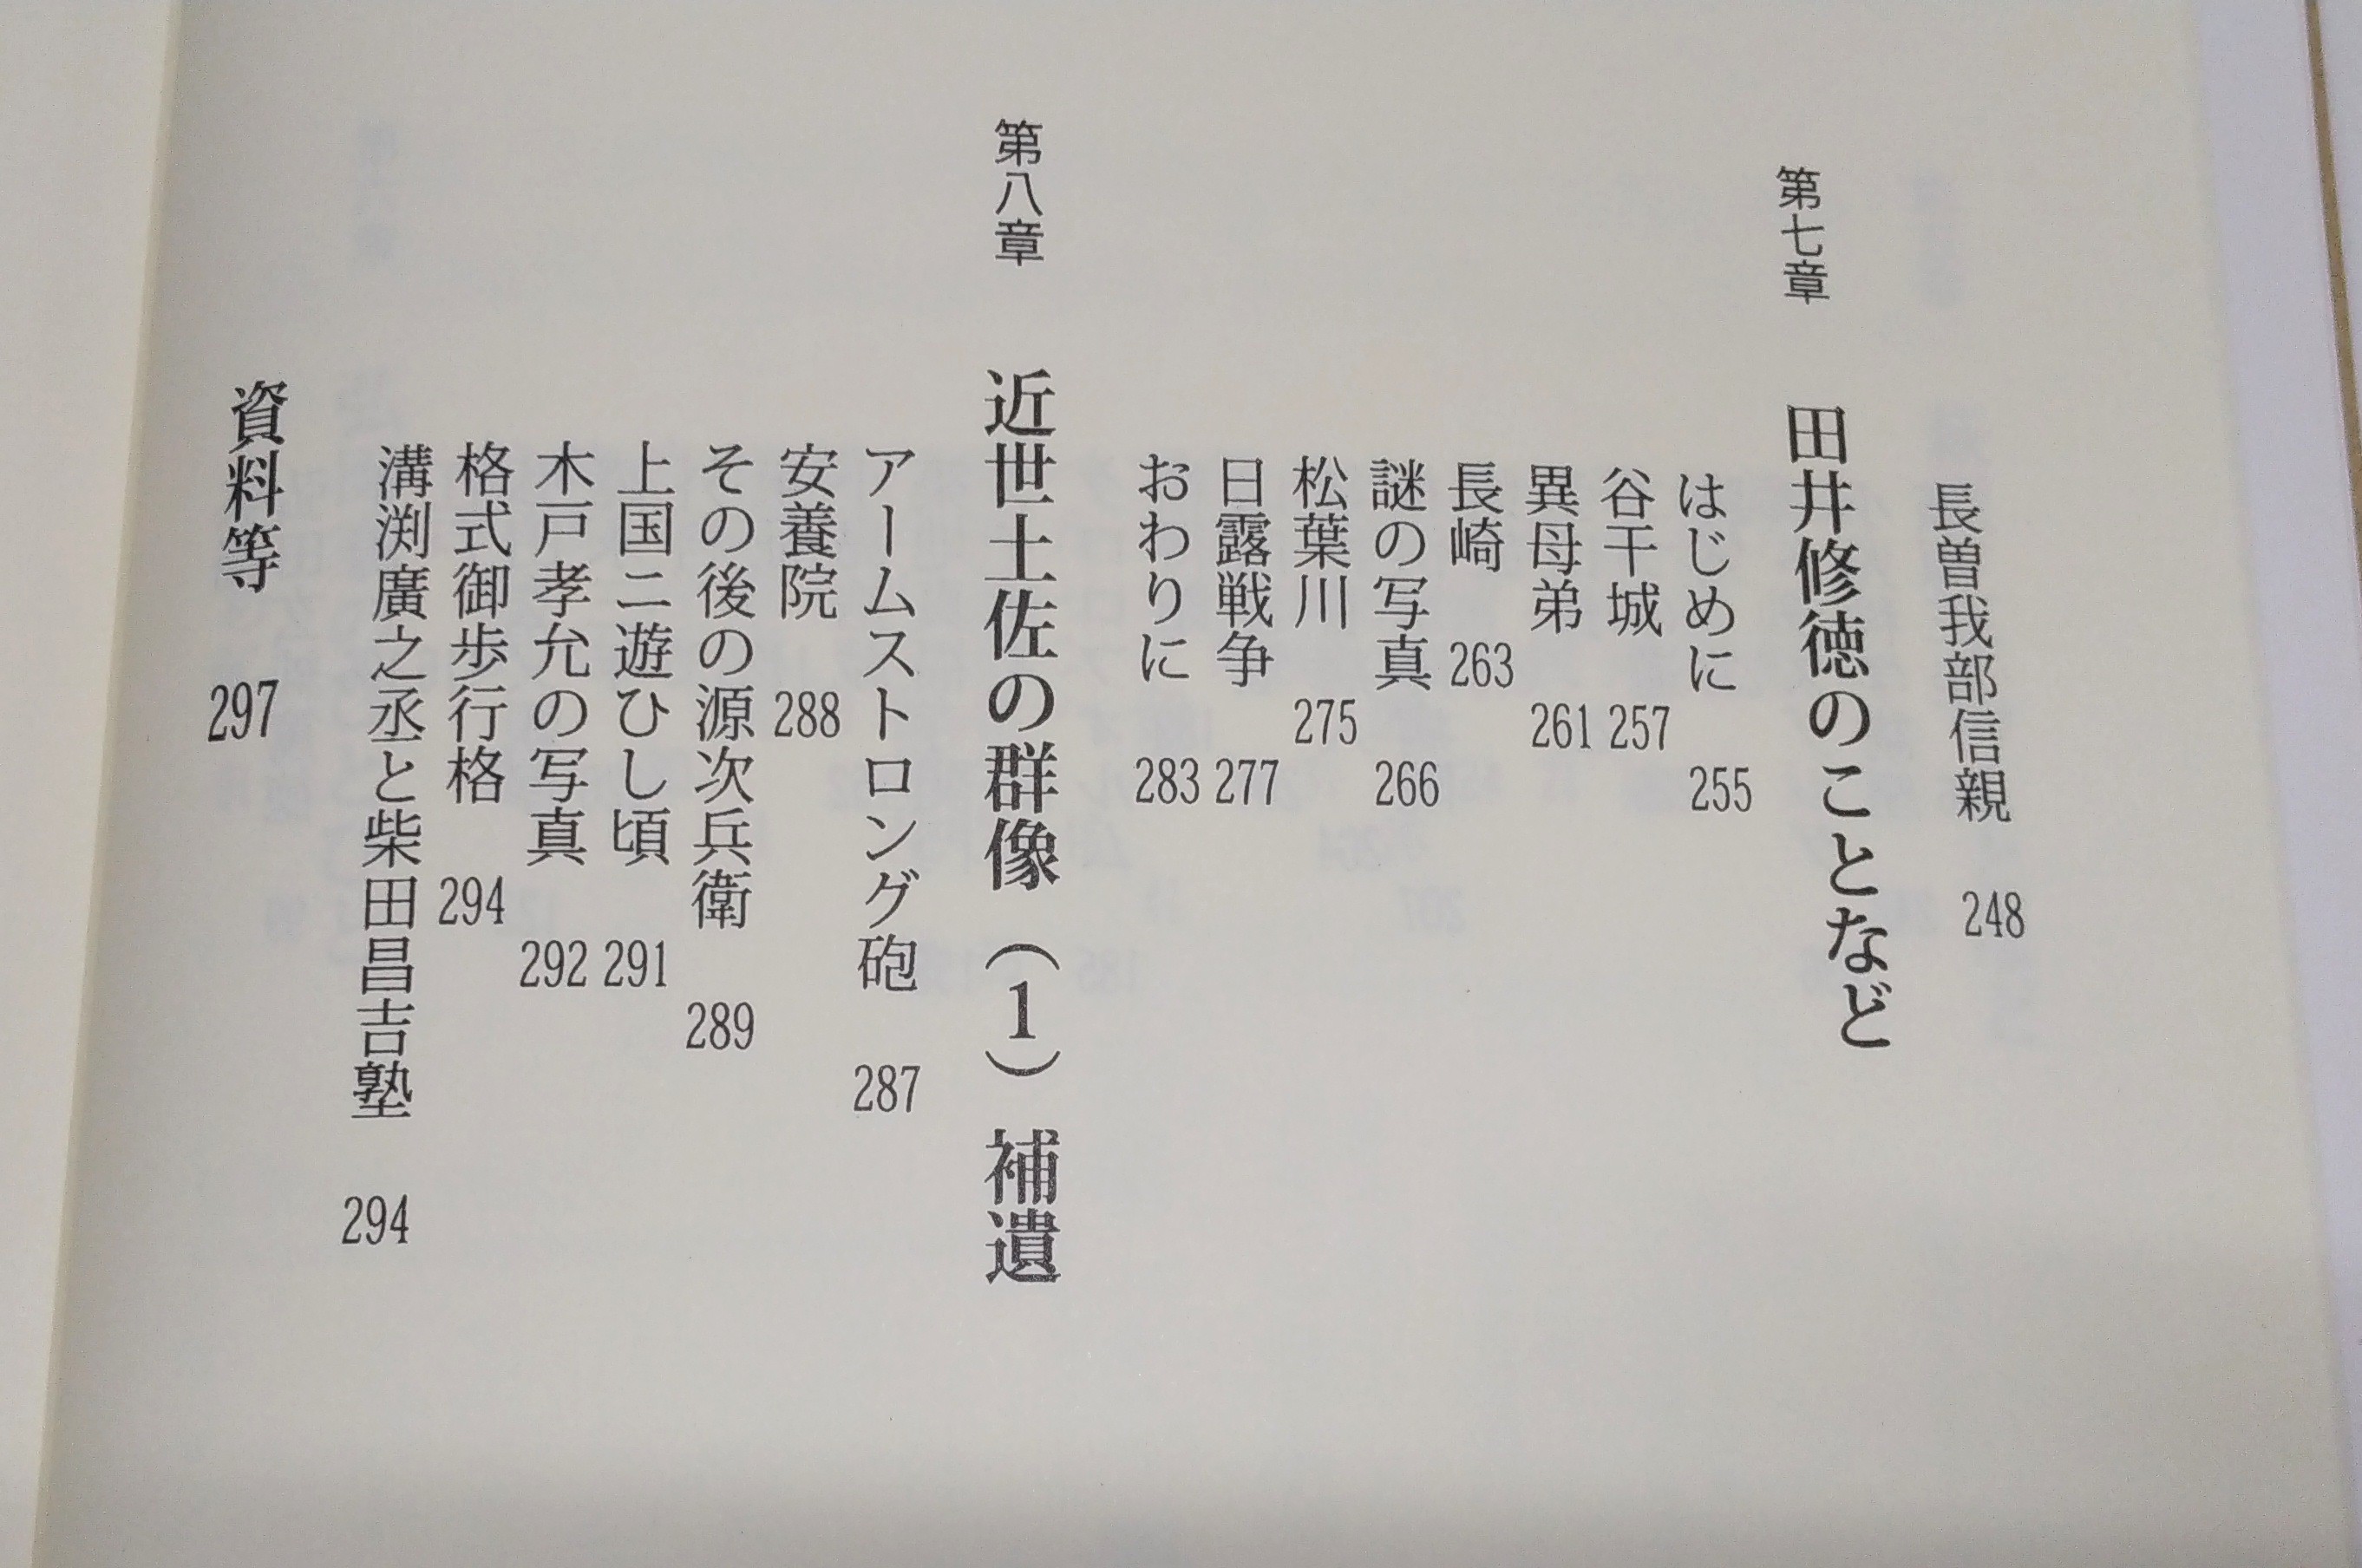 長曽我部信親 248
第七章 田井修徳のことなど
はじめに 255
谷干城 257
異母弟 261
長崎 263
謎の写真 266
松葉川 275
日露戦争 277
おわりに 283
第八章 近世土佐の群像（1）補遺
アームストロング砲 287
安養院 288
その後の源次兵衛 289
上国ニ遊ひし頃 291
木戸孝允の写真 292
格式御歩行格 294
溝渕廣之丞と柴田昌吉塾 294
資料等 297